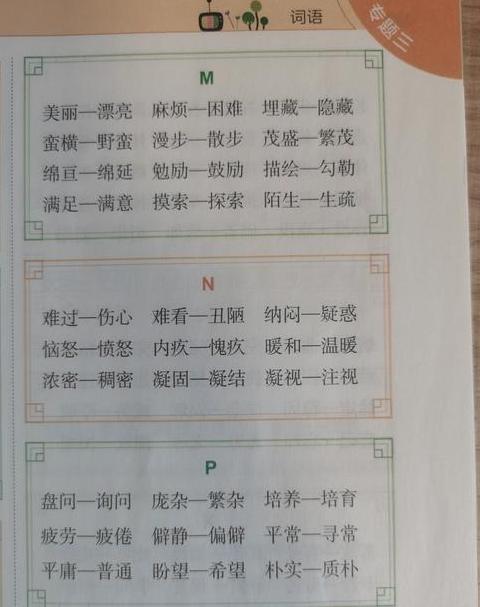 词语
专题三
M
美丽—漂亮 麻烦—困难 埋藏—隐藏
蛮横—野蛮 漫步—散步 茂盛—繁茂
绵亘—绵延 勉励—鼓励 描绘—勾勒
满足—满意 摸索—探索 陌生—生疏
N
难过—伤心 难看—丑陋 纳闷—疑惑
恼怒—愤怒 内疚—愧疚 暖和—温暖
浓密—稠密 凝固—凝结 凝视—注视
P
盘问—询问 庞杂—繁杂 培养—培育
疲劳—疲倦 僻静—偏僻 平常—寻常
平庸—普通 盼望—希望 朴实—质朴